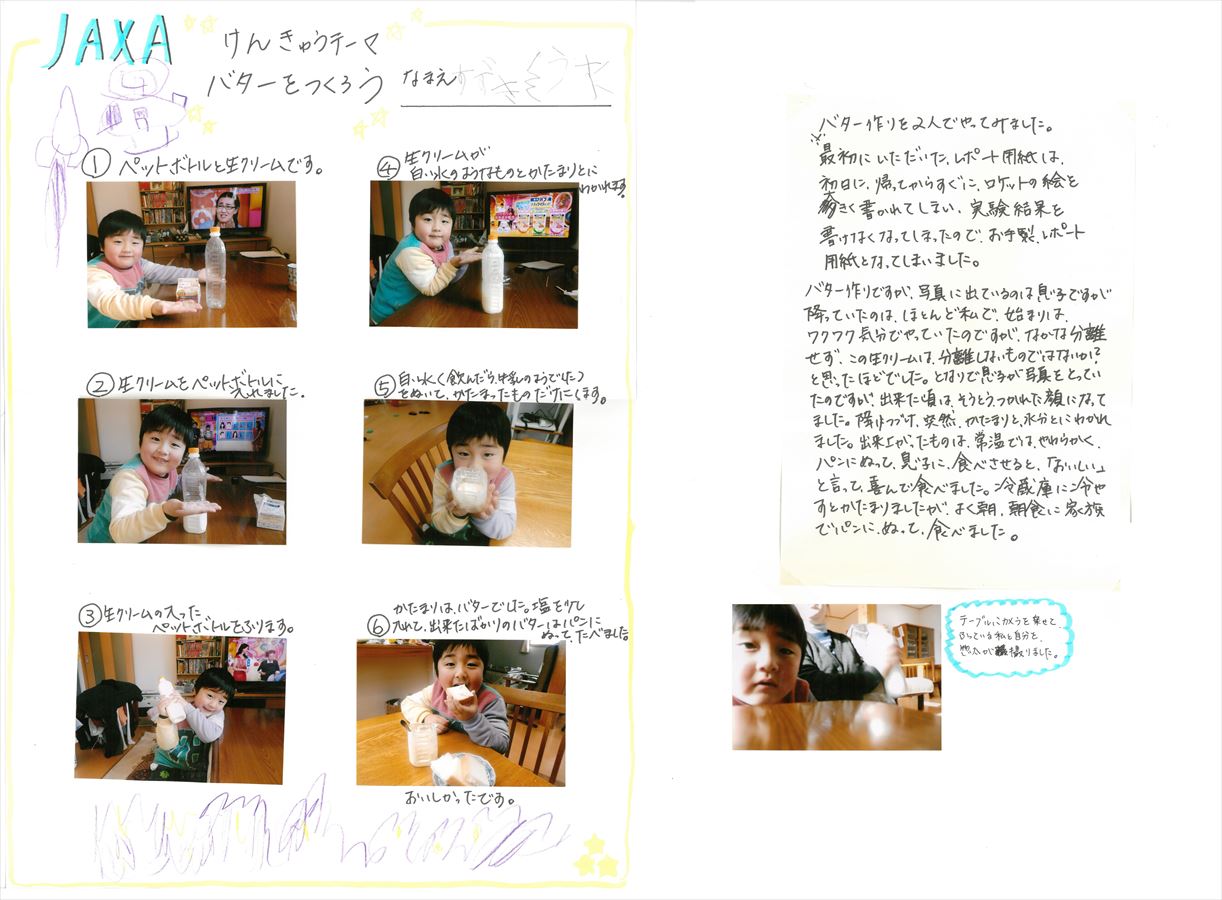 JAXA
けんきゅうテーマ
バターをつくろう
なまえ すずきそうた
① ペットボトルと生クリームです。
② 生クリームをペットボトルに
入れました。
③ 生クリームの入った
ペットボトルをふります。
④ 生クリームが
白い水のようなものとかたまりとに
わかれます。
⑤ 白い水（飲んだら、牛乳のようでした）
をぬいて、かたまったものだけにします。
かたまりは、バターでした。塩を少し
⑥ 入れて、出来たばかりのバターはパンに
ぬって、たべました
おいしかったです。
バター作りを2人でやってみました。
※
最初にいただいた、レポート用紙は、
初日に、帰ってからすぐに、ロケットの絵を
大きく書かれてしまい、実験結果を
書けなくなってしまったので、お手製、レポート
用紙となってしまいました。
バター作りですが、写真に出ているのは息子ですが
降っていたのは、ほとんど私で、始まりは、
ワクワク気分でやっていたのですが、なかなか分離
せず、この生クリームは、分離しないものではないか？
と思ったほどでした。となりで息子が写真をとってい
たのですが、出来た頃は、そうとうつかれた顔になって
ました。降りつづけ、突然、かたまりと、水分とにわかれ
ました。出来上がったものは、常温では、やわらかく、
パンにぬって、息子に、食べさせると、「おいしい」
と言って、喜んで食べました。冷蔵庫に冷や
すとかたまりましたが、よく朝、朝食に家族
でパンに、ぬって、食べました。
テーブルにカメラを乗せて
ふっている私と自分を、
撮りました。